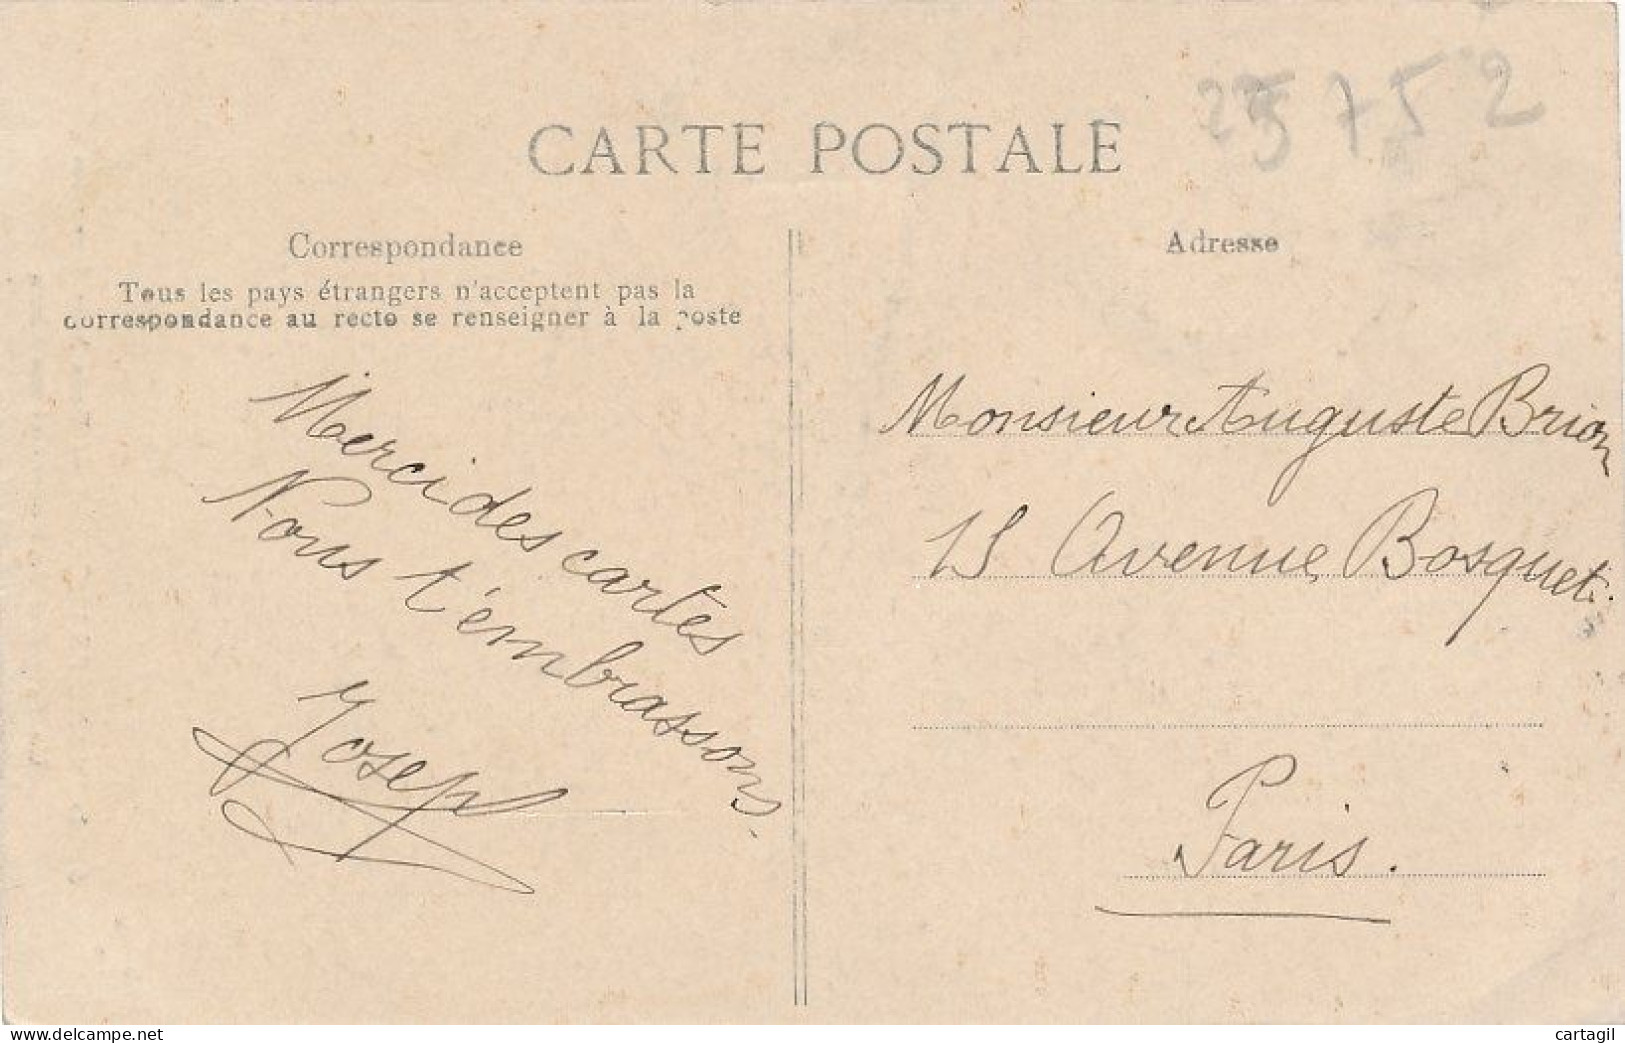 25752
CARTE POSTALE
Correspondance
Tous les pays étrangers n'acceptent pas la
correspondance au recto se renseigner à la poste
Merci des cartes
Nous t'embrassons.
Joseph
Adresse
Monsieur Auguste Brion
15 Avenue Bosquet.
Paris.
www.delcampe.net
cartagil